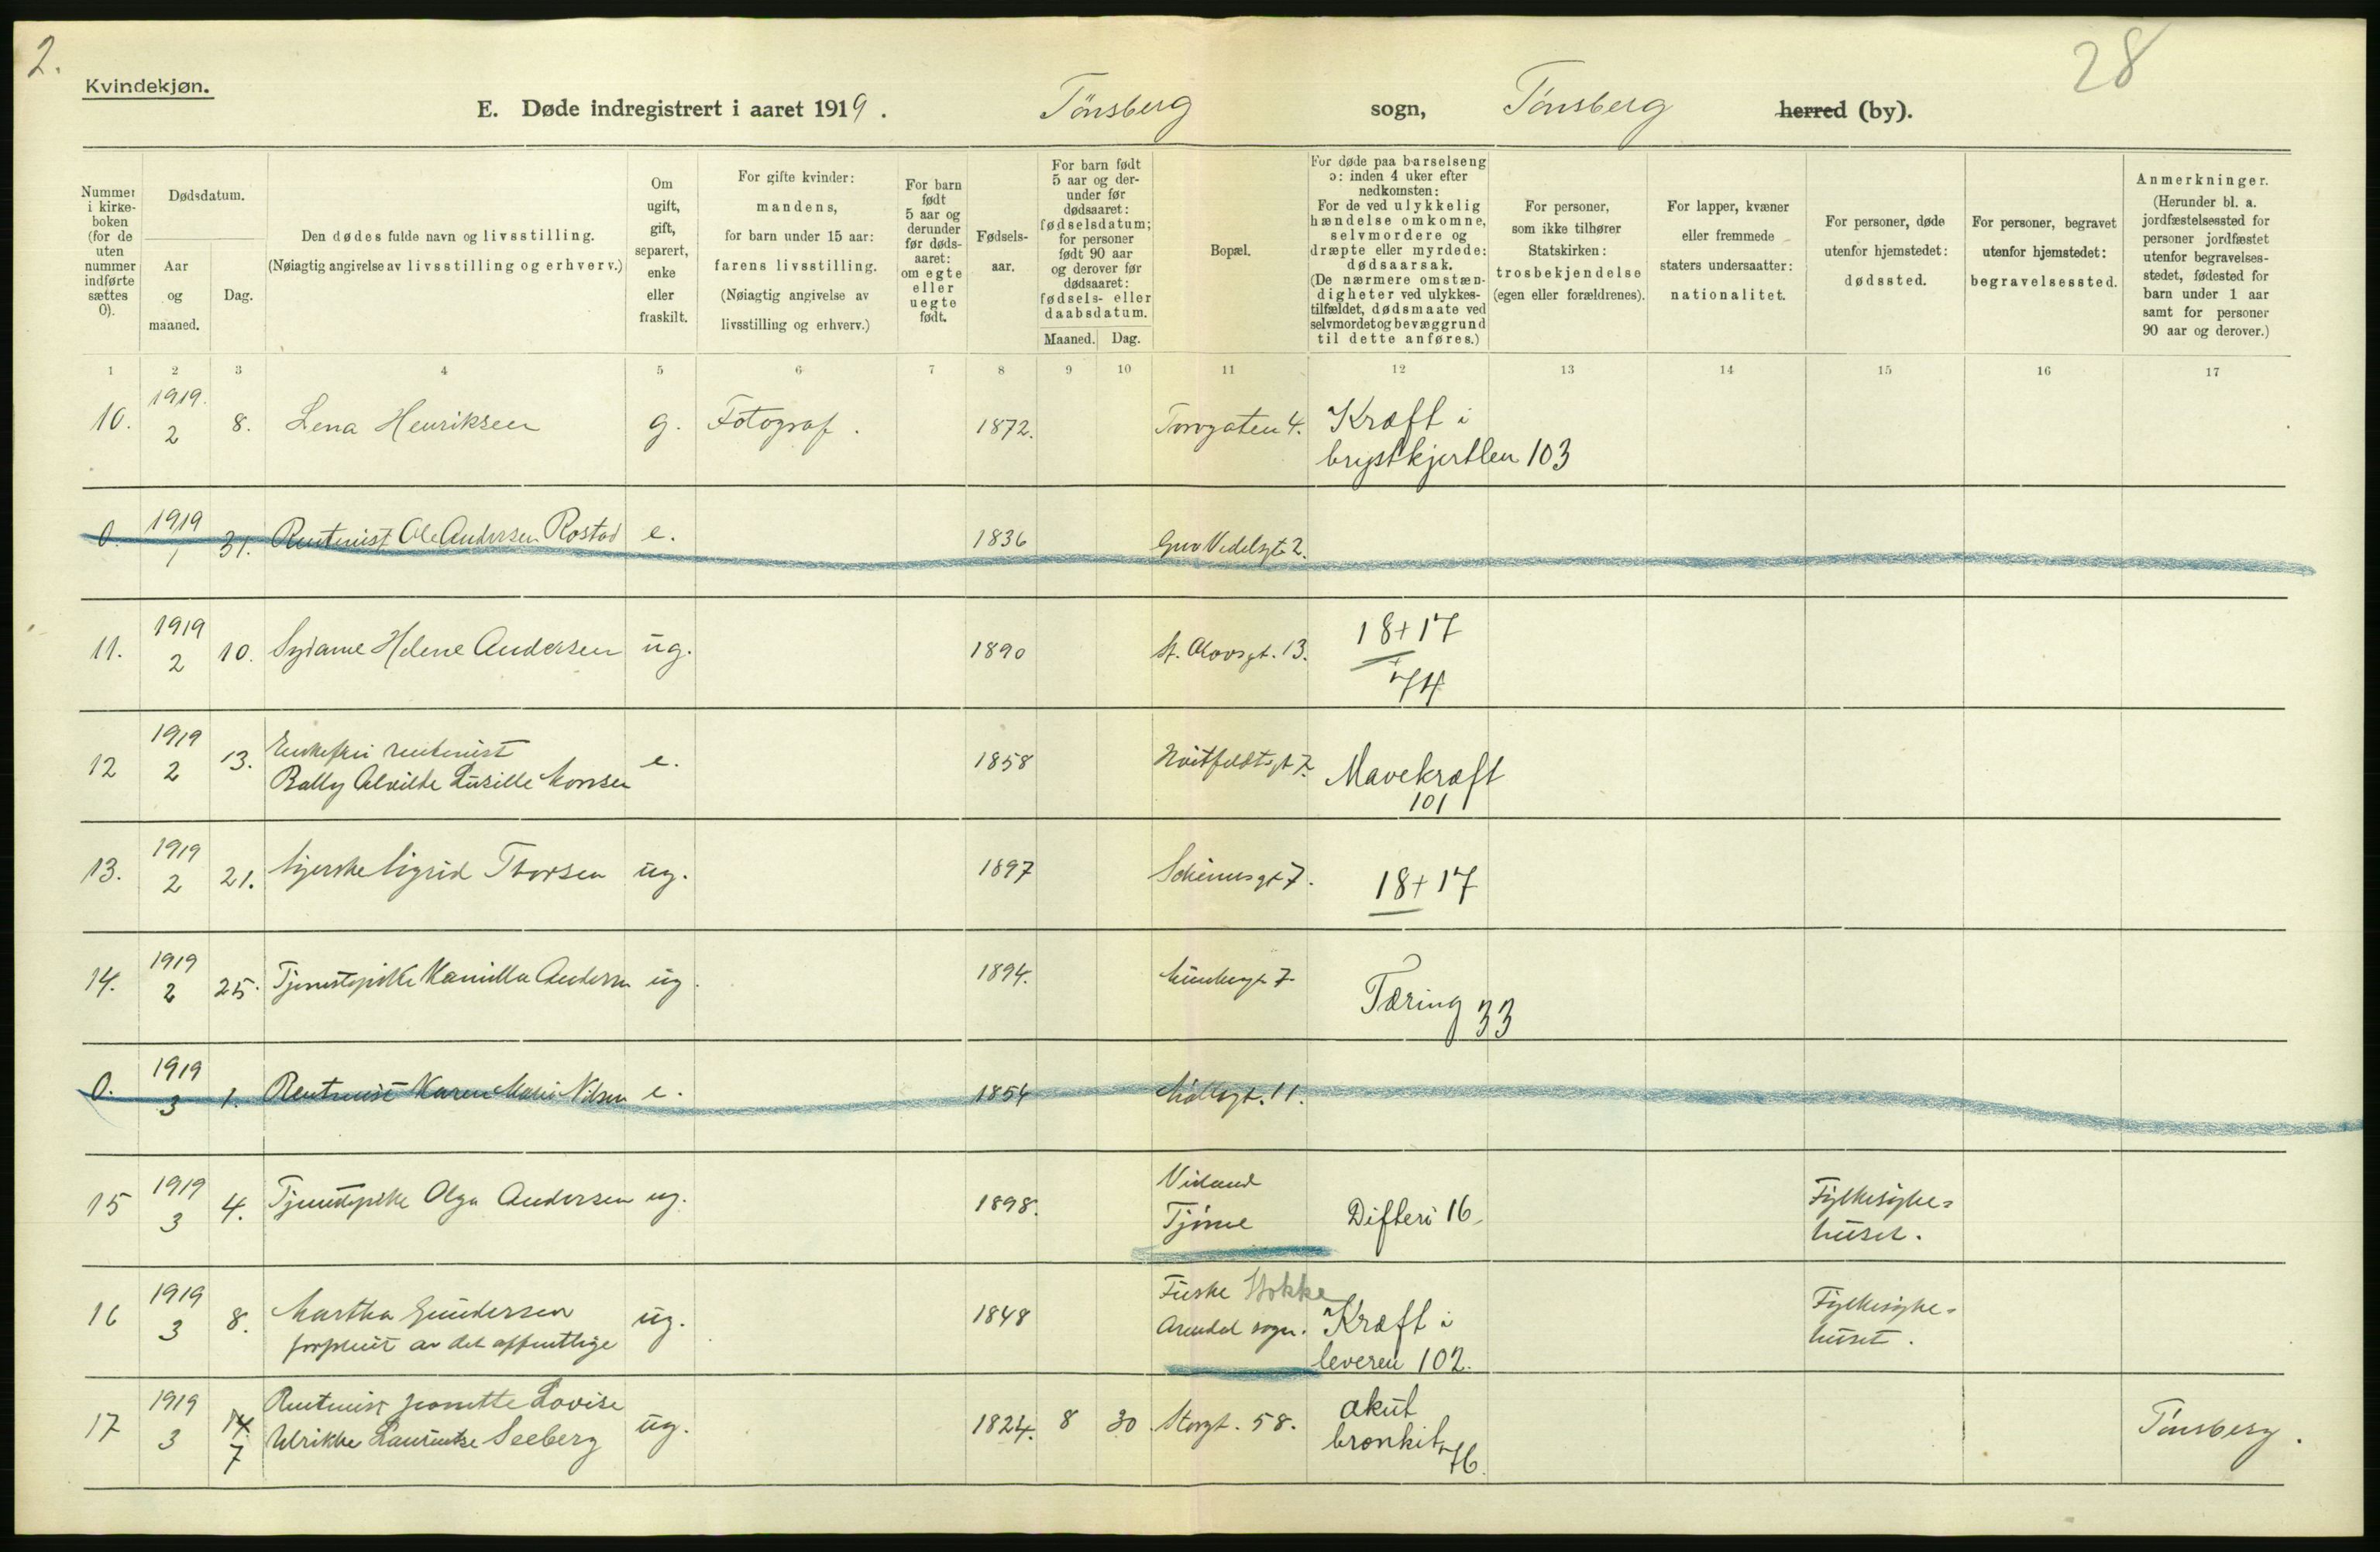 2.
28
Kvindekjøn.
E. Døde indregistrert i aaret 1919. Tönsberg sogn, Tönsberg herred (by).
Nummer
i kirke-
boken
(for de
uten
nummer
indførte
sættes
0).
Dødsdatum.
Aar
og
maaned.
Dag.
Den dødes fulde navn og livsstilling.
(Nøiagtig angivelse av livsstilling og erhverv.)
Om
ugift,
gift,
separert,
enke
eller
fraskilt.
For gifte kvinder:
mandens,
for barn under 15 aar:
farens livsstilling.
(Nøiagtig angivelse av
livsstilling og erhverv.)
For barn
født
5 aar og
derunder
før døds-
aaret:
om egte
eller
uegte
født.
Fødsels-
aar.
For barn født
5 aar og der-
under før
dødsaaret:
fødselsdatum;
for personer
født 90 aar
og derover før
dødsaaret:
fødsels- eller
daabsdatum.
Maaned. Dag.
Bopæl.
For døde paa barselseng
ɔ: inden 4 uker efter
nedkomsten:
For de ved ulykkelig
hændelse omkomne,
selvmordere og
dræpte eller myrdede:
dødsaarsak.
(De nærmere omstæn-
digheter ved ulykkes-
tilfældet, dødsmaate ved
selvmordet og bevæggrund
til dette anføres.)
For personer,
som ikke tilhører
Statskirken:
trosbekjendelse
(egen eller forældrenes).
For lapper, kvæner
eller fremmede
staters undersaatter:
nationalitet.
For personer, døde
utenfor hjemstedet:
dødssted.
For personer, begravet
utenfor hjemstedet:
begravelsessted.
Anmerkninger.
(Herunder bl. a.
jordfæstelsessted for
personer jordfæstet
utenfor begravelses-
stedet, fødested for
barn under 1 aar
samt for personer
90 aar og derover.)
1 2 3 4 5 6 7 8 9 10 11 12 13 14 15 16 17
10. 1919. 2 8. Lena Henriksen g. Fotograf. 1872. Torvgaten 4. Kræft i
brystkjertlen 103
0. 1919 1 31. Rentenist Ole Andersen Rostad e. 1836 Grev Vedelsgt 2.
11. 1919 2 10. Helene Andersen ug. 1890 St. Olovsgt. 13. 18+17
+74
12 1919 2 13. Enkefru rentenist
Bally Alvilde Lusille Monsen e. 1858 Hvitfeldtsgt 7. Mavekræft
101
13. 1919 2 21. Syerske Sigrid Thorsen ug. 1897 7. 18+17
14. 1919 2 25. Tjenestepike Kamilla Andersen ug. 1894. 7. Tæring 33
0. 1919 3 1. Rentenist Karen Marie Nilsen e. 1854 Möllegt. 11.
15 1919 3 4. Tjenestepike Olga Andersen ug. 1898. Vidaund
Tjöme Difteri 16. Fylkesyke=
huset.
16 1919 3 8. Martha Gundersen
forpleiet av det offentlige ug. 1848 Stokke
Arendal sogn. Kræft i
leveren 102. Fylkesyke=
huset.
17 1919 3 14 7 Rentenist Jeanette Lovise
Ulrikke Laurentse Seeberg ug. 1824. 8 30 Storgt. 58. akut
bronkit 76. Tönsberg.